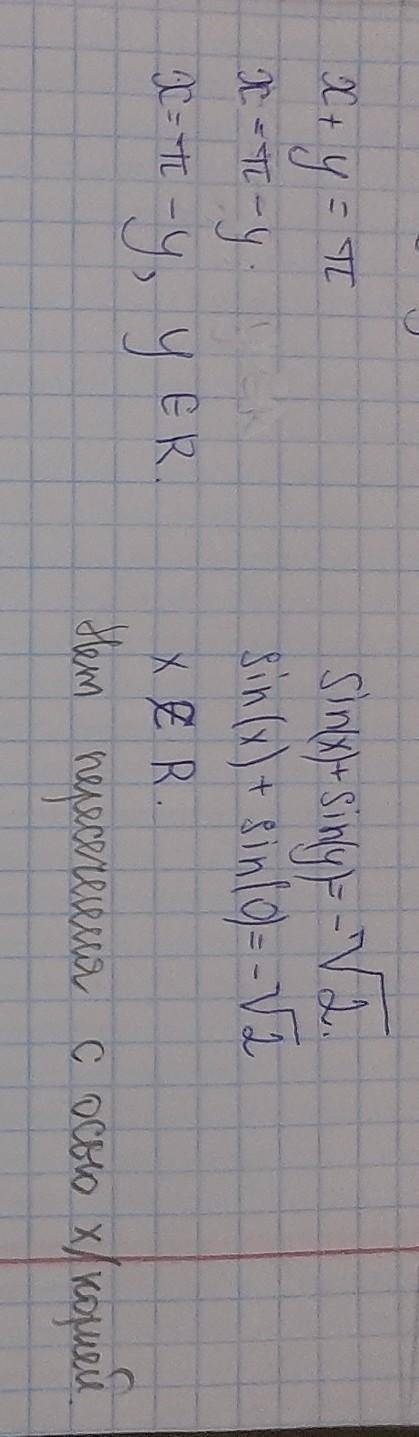 x + y = π
x = π - y.
x = π - y, y ∈ R.
Sin(x) + Sin(y) = -√2.
Sin(x) + Sin(0) = -√2
x ∉ R.
Нет пересечения с осью x/корней